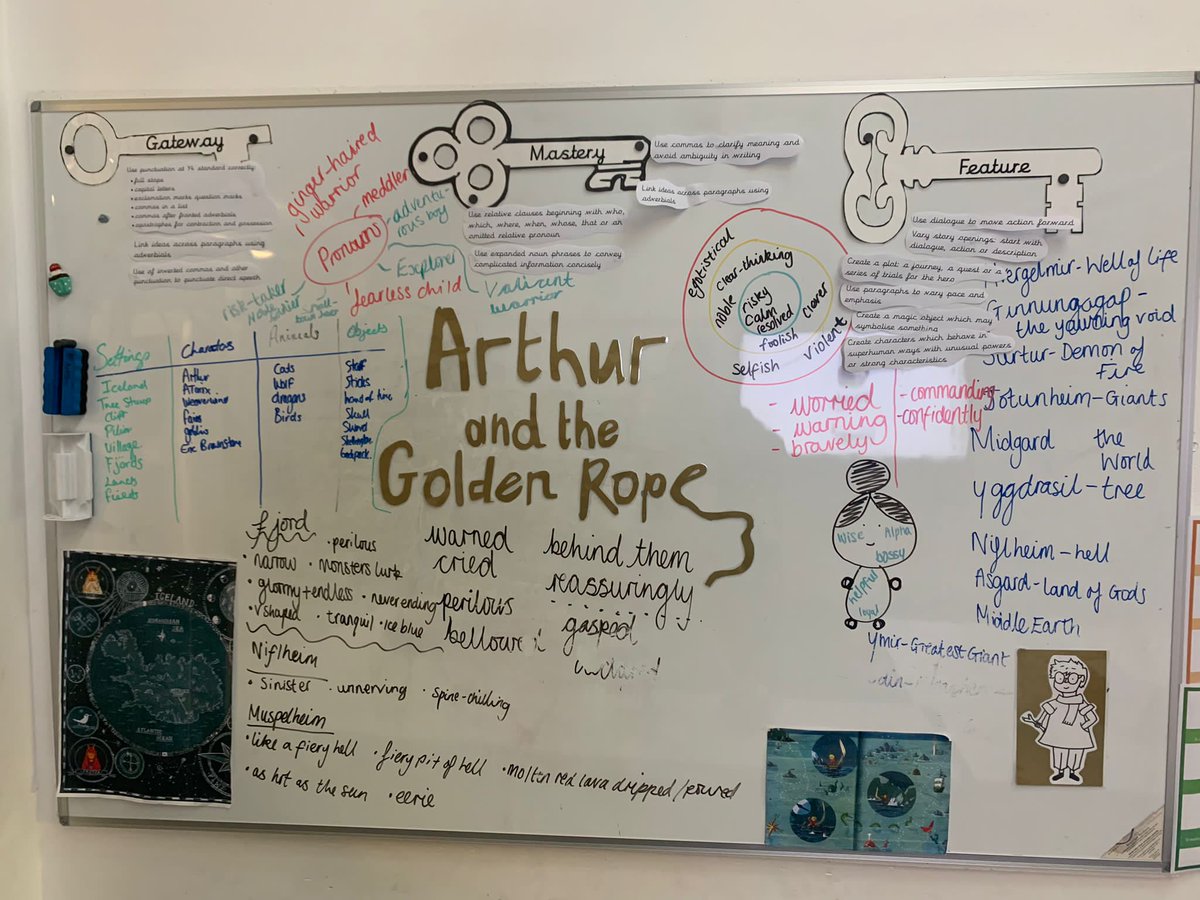 Gateway
Use punctuation at Y4 standard correctly
• full stops
• capital letters
• exclamation marks question marks
• commas in a list
• commas after fronted adverbials
• apostrophe for contraction and possession
Link ideas across paragraphs using
adverbials
Use of inverted commas and other
punctuation to punctuate direct speech
ginger-haired
warrior
meddler
adventu-
rous boy
Pronoun
Explorer
Valient
warrior
fearless child
risk-taker
Mastery
Use commas to clarify meaning and
avoid ambiguity in writing
Link ideas across paragraphs using
adverbials
Use relative clauses beginning with who,
which, where, when, whose, that or an
omitted relative pronoun
Use expanded noun phrases to convey
complicated information concisely
Feature
Use dialogue to move action forward
Vary story openings: start with
dialogue, action or description
Create a plot: a journey, a quest or a
series of trials for the hero
Use paragraphs to vary pace and
emphasis
Create a magic object which may
symbolise something
Create characters which behave in
superhuman ways with unusual powers
or strong characteristics
egotistical
clear-thinking
noble
risky
Calm
resolved
clever
foolish
violent
selfish
- worried
- warning
- bravely
- commanding
- confidently
Settings
Iceland
Tree Stump
Cliff
Village
Fjords
Fields
Characters
Arthur
Animals
Wolf
dragons
Birds
Objects
Staff
Sticks
hand of time
Skull
Arthur
and the
Golden Rope
Fjord
• perilous
• narrow
• monsters lurk
• gloomy + endless
• never ending
• V shaped
• tranquil
• ice blue
warned
cried
perilous
behind them
reassuringly
gasped
Niflheim
• Sinister
• unnerving
• spine-chilling
Muspelheim
• like a fiery hell
• fiery pit of hell
• Molten red lava dripped/poured
• as hot as the sun
• eerie
wise
Alpha
bossy
helpful
loyal
Well of life
Ginnungagap -
the yawning void
Surtur - Demon of
Fire
Jotunheim - Giants
Midgard the
World
Yggdrasil - tree
Niflheim - hell
Asgard - land of Gods
Middle Earth
Ymir - Greatest Giant
ICELAND